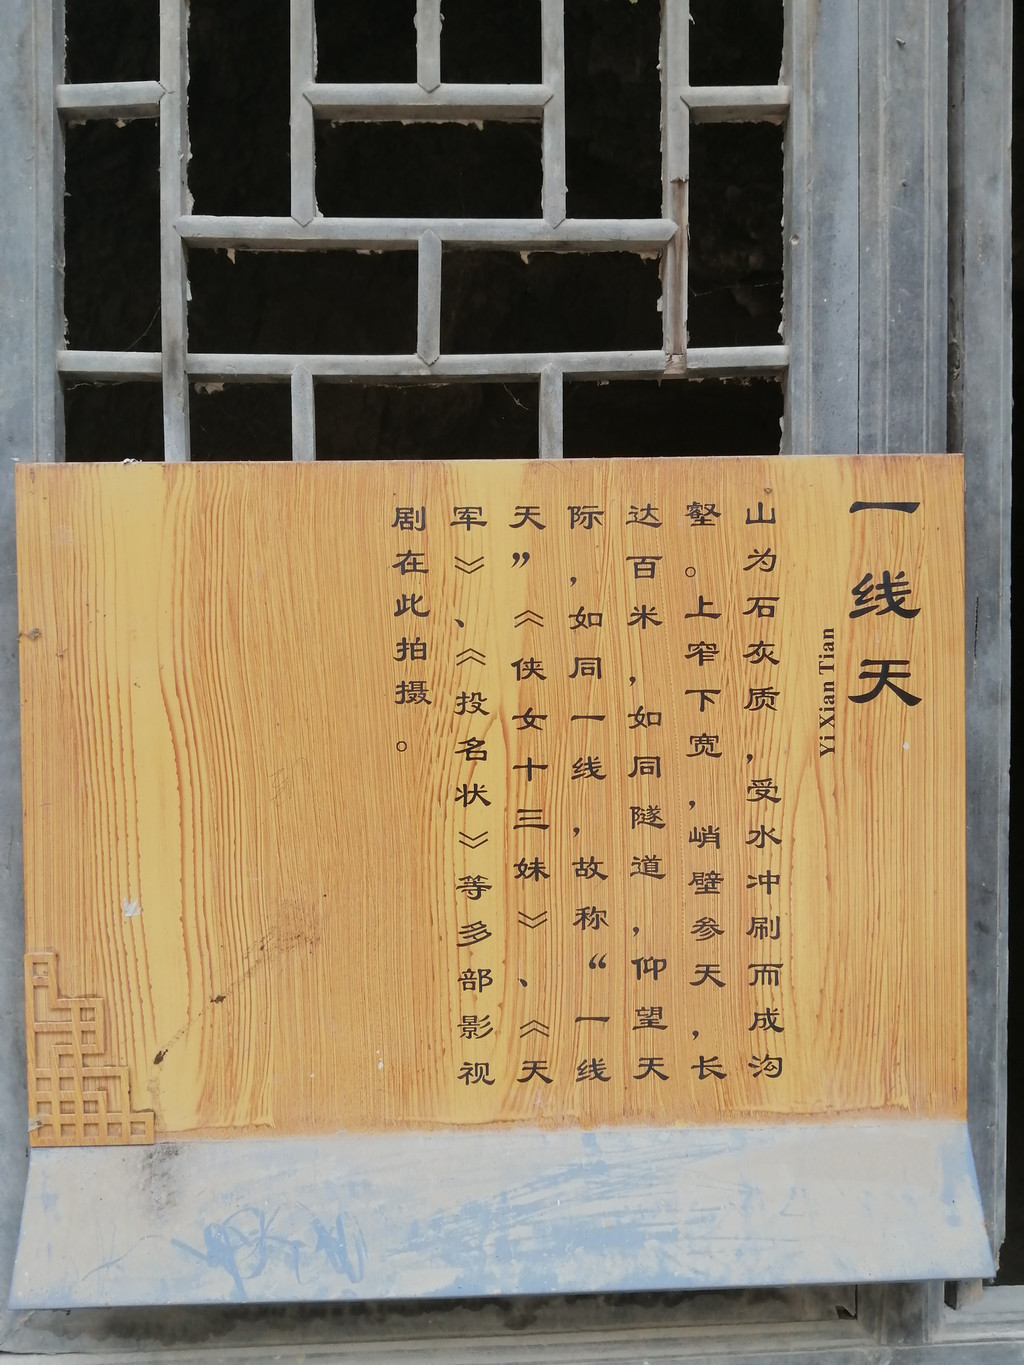 一线天
Yi Xian Tian
山为石灰质，受水冲刷而成沟
壑。上窄下宽，峭壁参天，长
达百米，如同隧道，仰望天
际，如同一线，故称“一线
天”《侠女十三妹》、《天
军》、《投名状》等多部影视
剧在此拍摄。